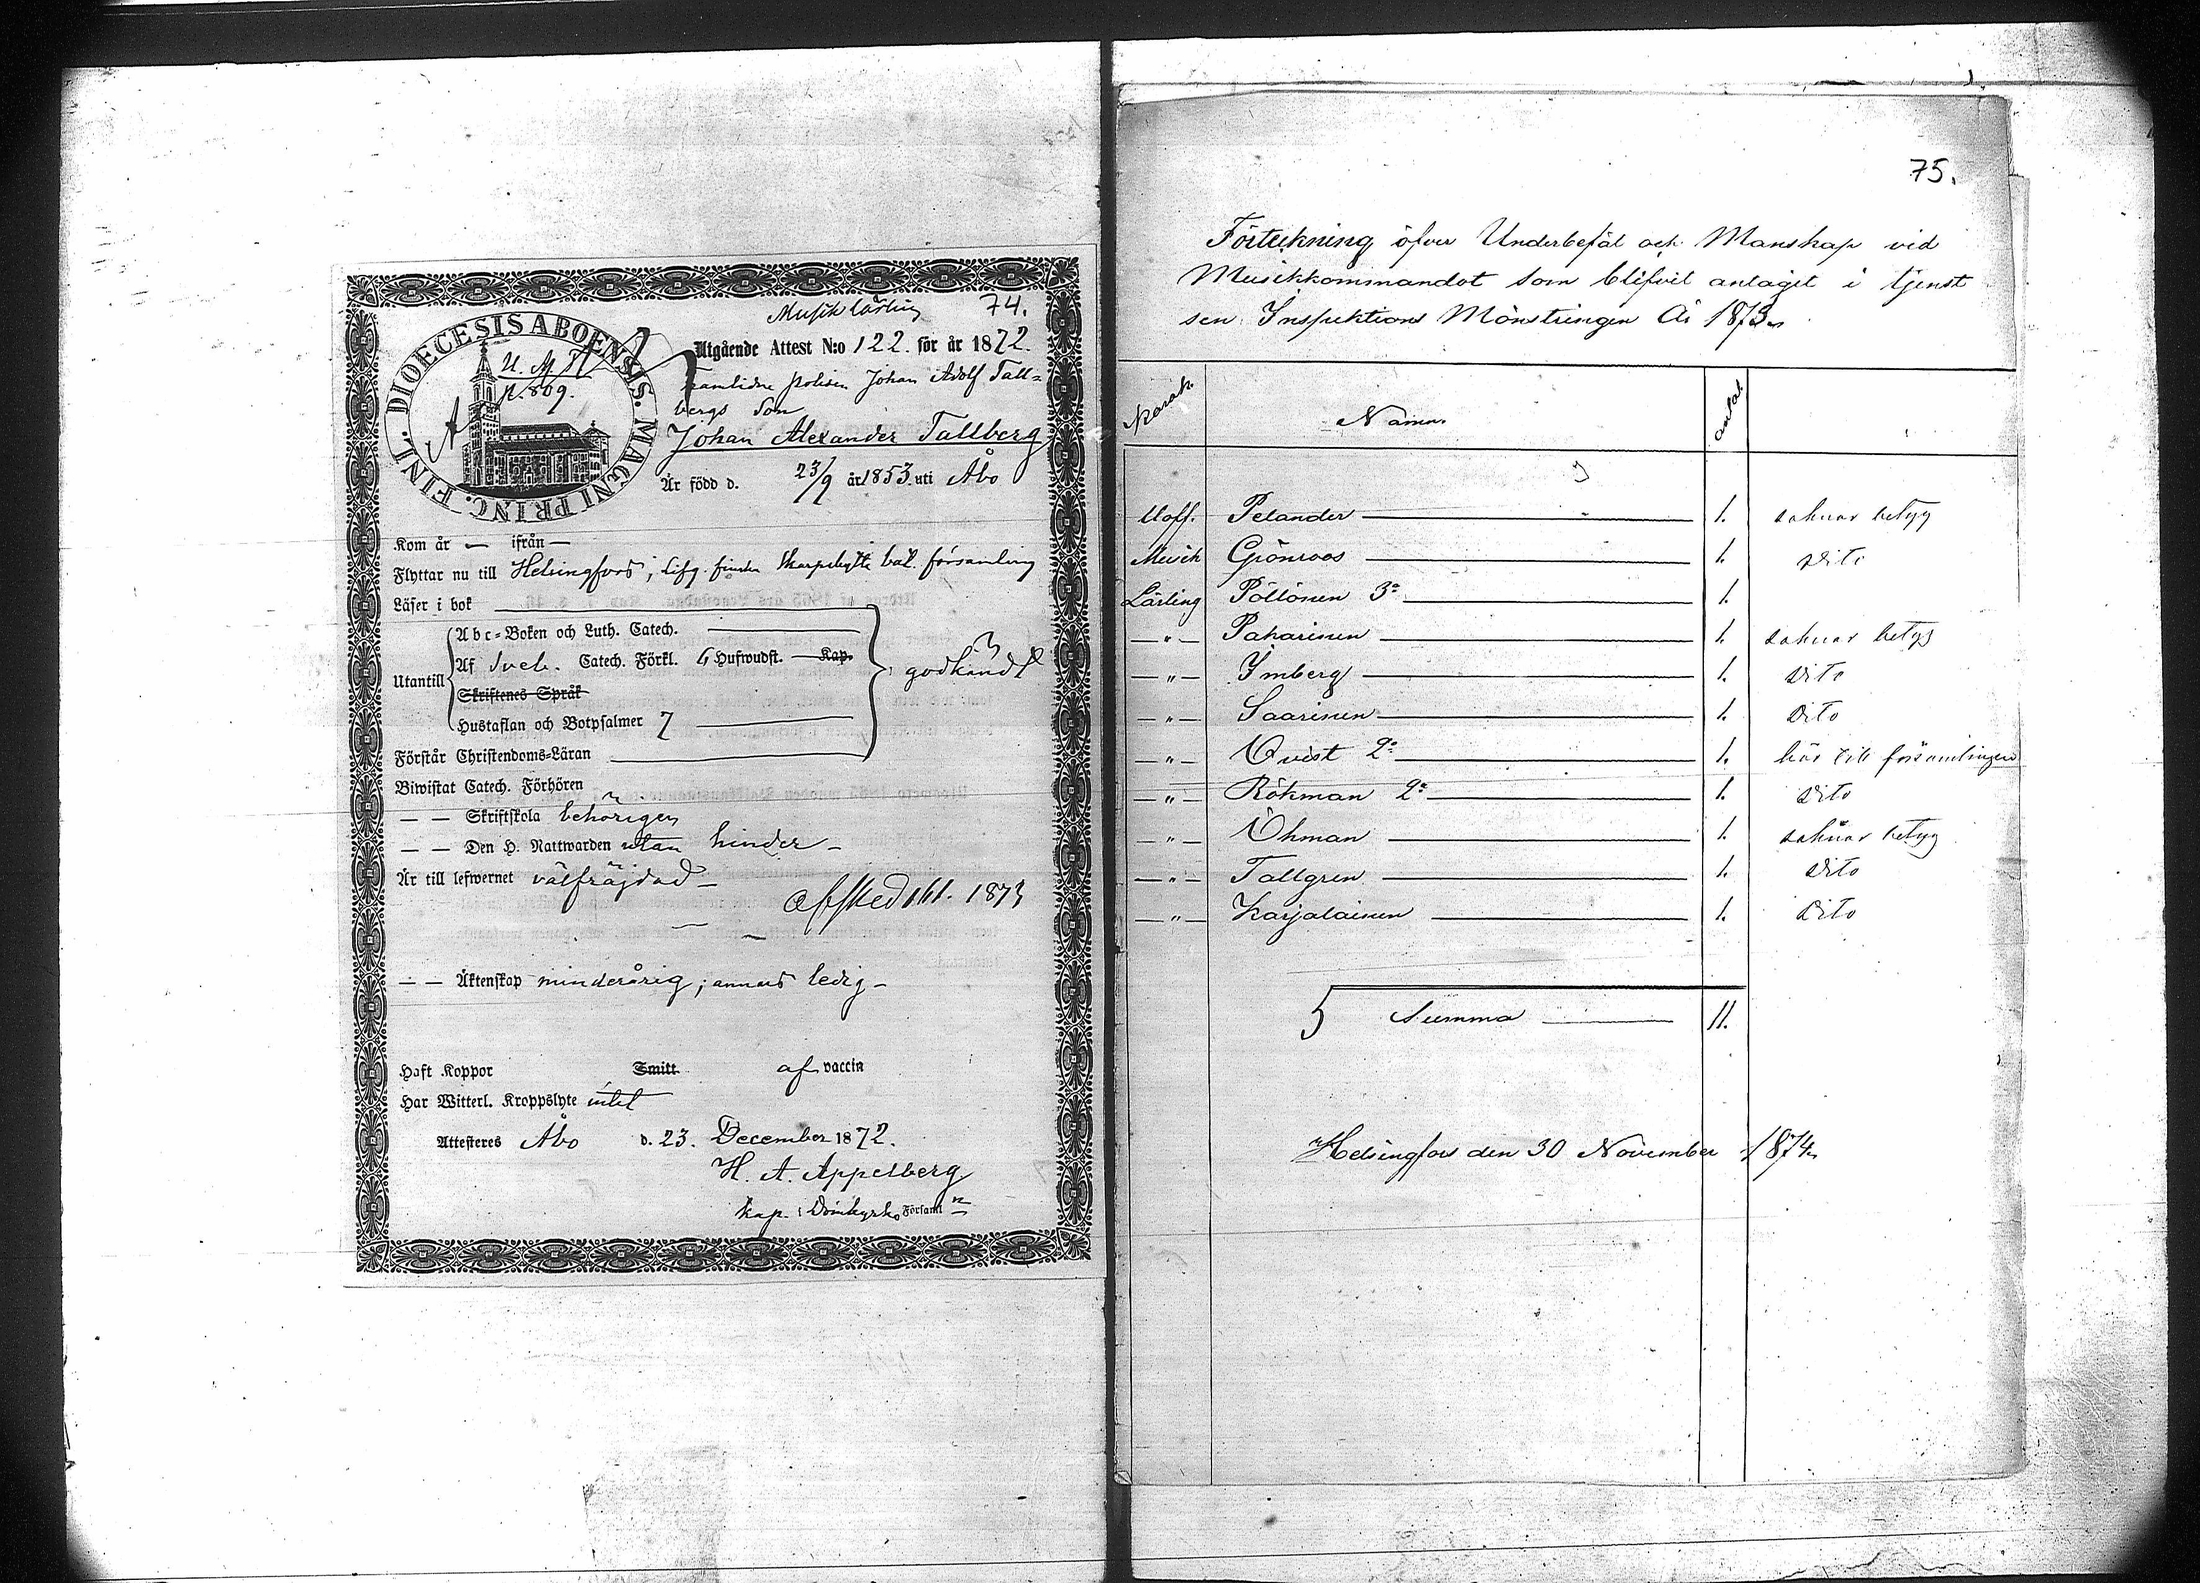 Musik lärling 74.
DIOECESIS ABOENSIS. MAGNI PRINC. FINL.
p. 809.
Utgående Attest N:o 122. för år 1872.
Framlidne polisen Johan Adolf Tall=
bergs Son
Johan Alexander Tallberg
Är född d. 23/9 år 1853. uti Åbo
Kom år — ifrån —
Flyttar nu till Helsingfors, Lifg. finska Skarpskytte bat. församling
Läser i bok
Abc=Boken och Luth. Catech.
Utantill
Af Sveb. Catech. Förkl. 6 Hufwudst. Kap.
godkändt
Skriftenes Språk
Hustaflan och Botpsalmer 7
Förstår Christendoms=Läran
Biwistat Catech. Förhören
— — Skriftskola behörigen
— — Den H. Nattwarden utan hinder –
Är till lefwernet välfräjdad –
afsked 1873
— — Äktenskap minderårig; annars ledig –
Haft Koppor Smitt. af vaccin
Har Witterl. Kroppslyte intet
Attesteres Åbo d. 23. December 1872.
H. A. Appelberg
Kap. i Domkyrko Församl
75.
Förteckning öfver Underbefäl och Manskap vid
Musikkommandot som blifvit antaget i tjenst
sen Inspektions Mönstringen År 1873.
Karak. Namn. antal
Uoff. Pelander 1. saknar betyg
Musik Grönroos 1. Dito
Lärling Pöllönen 3e 1.
— " — Paharinen 1. saknar betyg
— " — Ymberg 1. Dito
— " — Saarinen 1. Dito
— " — Qvist 2e 1. hör till församlingen
— " — Rökman 2e 1. Dito
— " — Öhman 1. saknar betyg
— " — Tallgren 1. Dito
— " — Karjalainen 1. Dito
5 Summa 11.
Helsingfors den 30 November 1874.